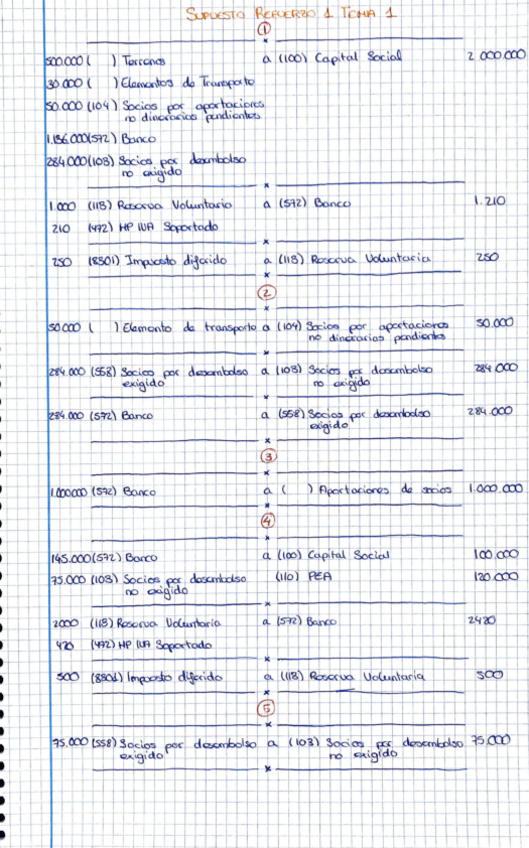 SUPUESTO REFUERZO 1 TEMA 1
1
500.000 ( ) Terrenos a (100) Capital Social 2.000.000
30.000 ( ) Elementos de Transporte
50.000 (104) Socios por aportaciones
no dinerarias pendientes
1.136.000 (572) Banco
284.000 (103) Socios por desembolso
no exigido
1.000 (113) Reserva Voluntario a (572) Banco 1.210
210 (472) HP IVA Soportado
250 (8301) Impuesto diferido a (113) Reserva Voluntaria 250
2
50.000 ( ) Elemento de transporte a (104) Socios por aportaciones 50.000
no dinerarias pendientes
284.000 (558) Socios por desembolso a (103) Socios por desembolso 284.000
exigido no exigido
284.000 (572) Banco a (558) Socios por desembolso 284.000
exigido
3
1.000.000 (572) Banco a ( ) Aportaciones de socios 1.000.000
4
145.000 (572) Banco a (100) Capital Social 100.000
75.000 (103) Socios por desembolso (110) PEA 120.000
no exigido
2000 (113) Reserva Voluntaria a (572) Banco 2420
420 (472) HP IVA Soportado
500 (8301) Impuesto diferido a (113) Reserva Voluntaria 500
5
75.000 (558) Socios por desembolso a (103) Socios por desembolso 75.000
exigido no exigido